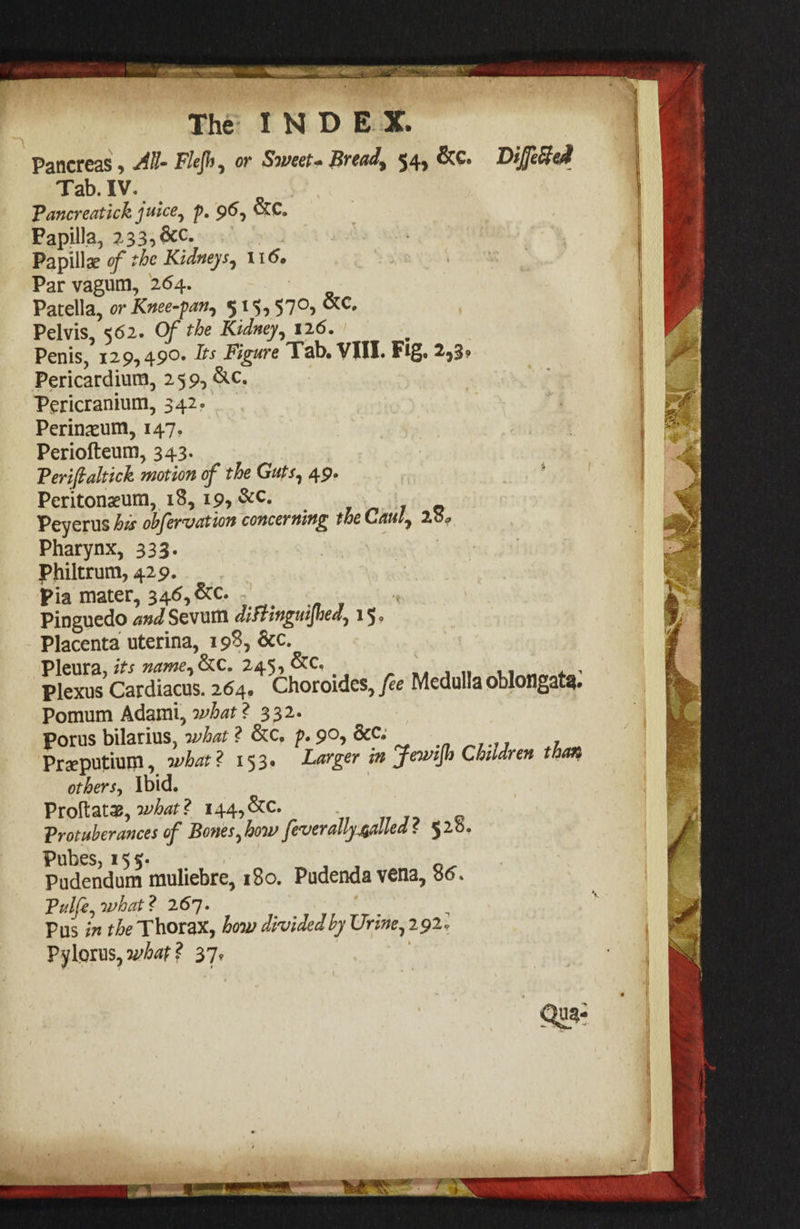 The INDEX.
Pancreas, All-Fleſh, or Sweet-Bread, 54, &c. Diſſected
Tab. IV.
Pancreatick juice, p. 96, &c.
Papilla, 233, &c.
Papillæ of the Kidneys, 116.
Par vagum, 264.
Patella, or Knee-pan, 515, 570, &c.
Pelvis, 562. Of the Kidney, 126.
Penis, 129, 490. Its Figure Tab. VIII. Fig. 2, 3.
Pericardium, 259, &c.
Pericranium, 342.
Perinæum, 147.
Perioſteum, 343.
Periſtaltick motion of the Guts, 49.
Peritonæum, 18, 19, &c.
Peyerus his obſervation concerning the Caul, 28.
Pharynx, 333.
Philtrum, 429.
Pia mater, 346, &c.
Pinguedo and Sevum diſtinguiſhed, 15.
Placenta uterina, 198, &c.
Pleura, its name, &c. 245, &c.
Plexus Cardiacus. 264. Choroides, ſee Medulla oblongata.
Pomum Adami, what? 332.
Porus bilarius, what? &c. p. 90, &c.
Præputium, what? 153. Larger in Jewiſh Children than
others, Ibid.
Proſtatæ, what? 144, &c.
Protuberances of Bones, how ſeverally called? 528.
Pubes, 155.
Pudendum muliebre, 180. Pudenda vena, 86.
Pulſe, what? 267.
Pus in the Thorax, how divided by Urine, 292.
Pylorus, what? 37.
Qua-